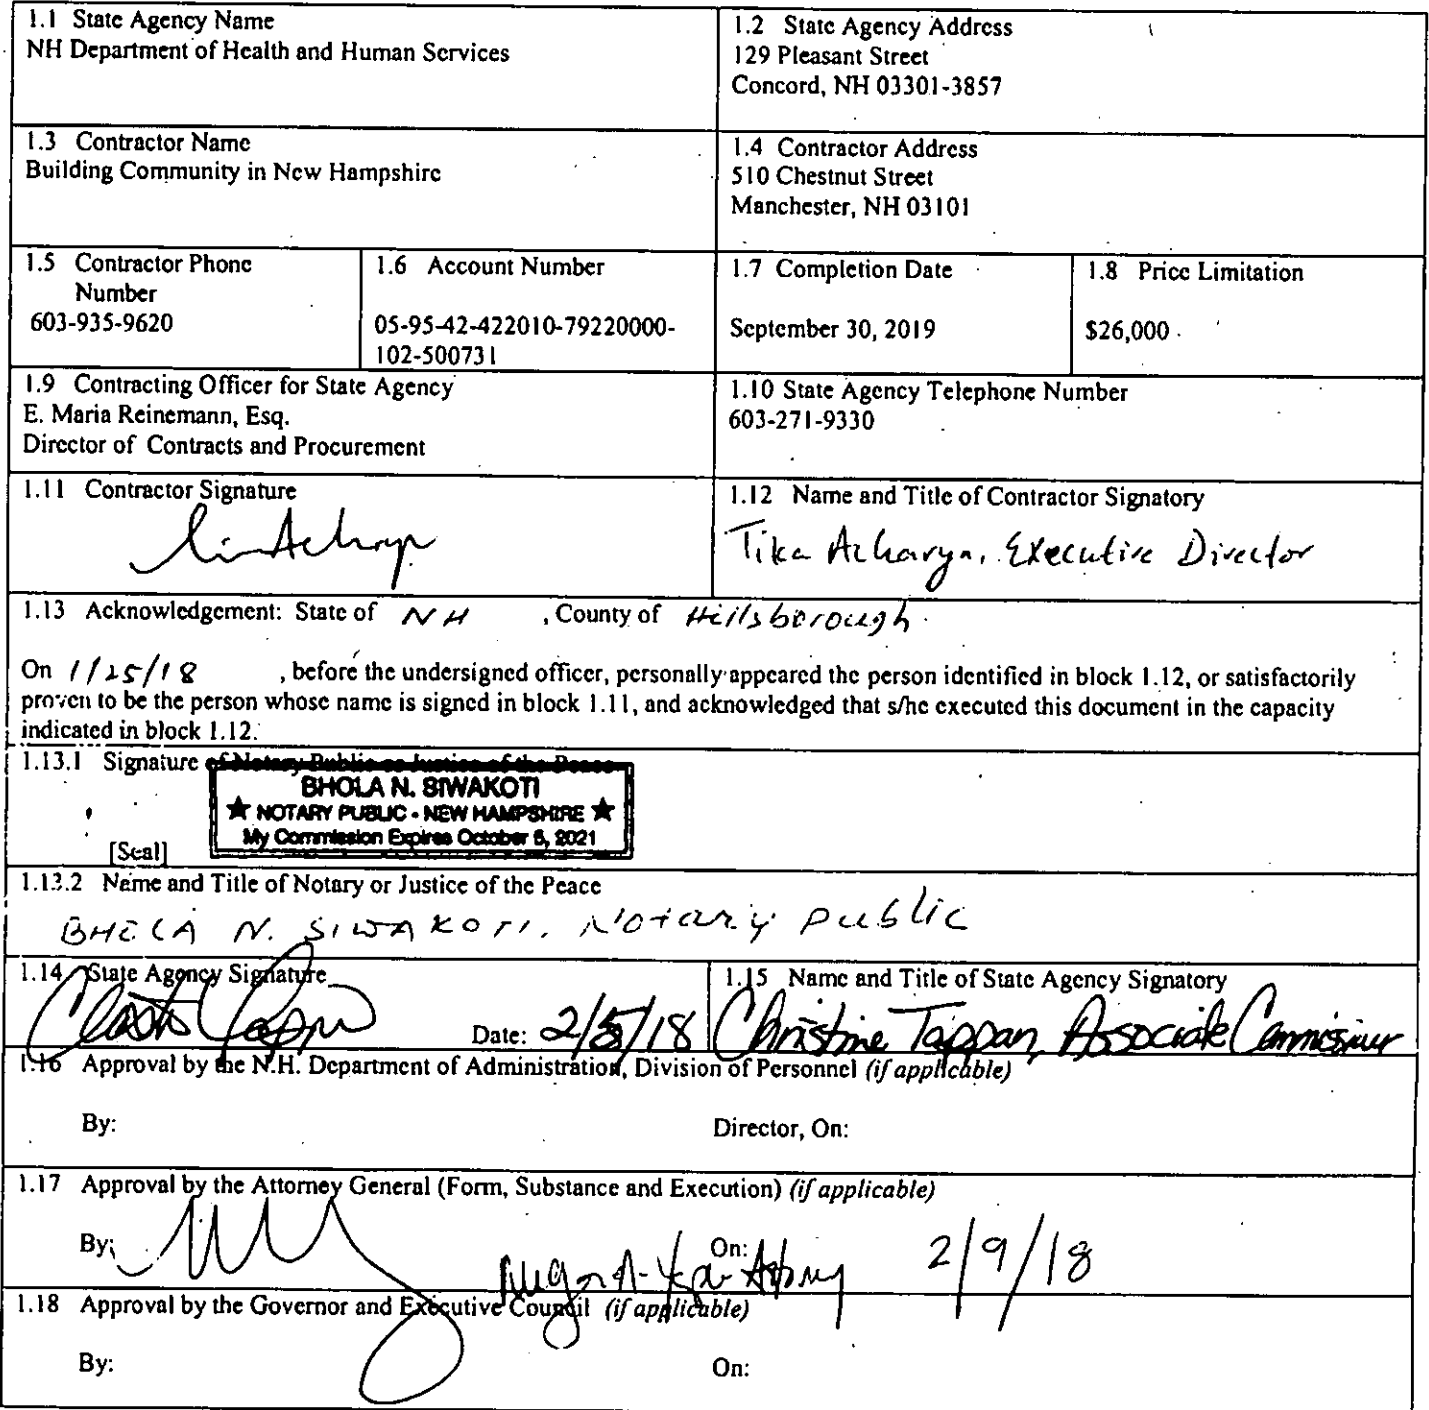 1.1 State Agency Name
NH Department of Health and Human Services
1.2 State Agency Address
129 Pleasant Street
Concord, NH 03301-3857
1.3 Contractor Name
Building Community in New Hampshire
1.4 Contractor Address
510 Chestnut Street
Manchester, NH 03101
1.5 Contractor Phone
Number
603-935-9620
1.6 Account Number
05-95-42-422010-79220000-
102-500731
1.7 Completion Date
September 30, 2019
1.8 Price Limitation
$26,000
1.9 Contracting Officer for State Agency
E. Maria Reinemann, Esq.
Director of Contracts and Procurement
1.10 State Agency Telephone Number
603-271-9330
1.11 Contractor Signature
1.12 Name and Title of Contractor Signatory
Tika Acharya, Executive Director
1.13 Acknowledgement: State of NH , County of Hillsborough
On 1/25/18 , before the undersigned officer, personally appeared the person identified in block 1.12, or satisfactorily
proven to be the person whose name is signed in block 1.11, and acknowledged that s/he executed this document in the capacity
indicated in block 1.12.
1.13.1 Signature of Notary Public or Justice of the Peace
BHOLA N. SIWAKOTI
★ NOTARY PUBLIC - NEW HAMPSHIRE ★
My Commission Expires October 5, 2021
[Seal]
1.13.2 Name and Title of Notary or Justice of the Peace
BHOLA N. SIWAKOTI, Notary Public
1.14 State Agency Signature
Date: 2/5/18
1.15 Name and Title of State Agency Signatory
Christine Tappan, Associate Commissioner
1.16 Approval by the N.H. Department of Administration, Division of Personnel (if applicable)
By: Director, On:
1.17 Approval by the Attorney General (Form, Substance and Execution) (if applicable)
By: On: 2/9/18
1.18 Approval by the Governor and Executive Council (if applicable)
By: On: